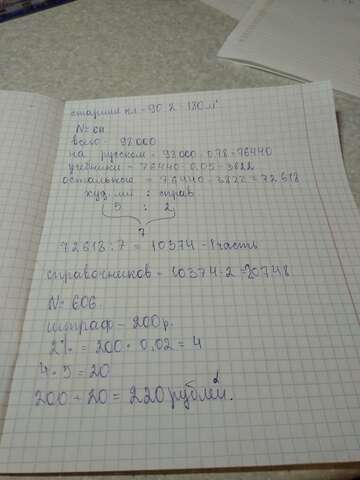 старший кл - 90 · 2 = 180 м²
N = сп
всего - 98000
на русском - 98000 · 0.78 = 76440
учебники - 76440 · 0.05 = 3822
остальное = 76440 - 3822 = 72618
худ. лит : справ
5 : 2
7
72618 : 7 = 10374 - 1 часть
справочников - 10374 · 2 = 20748
N = 606.
штраф - 200 р.
2% = 200 · 0.02 = 4
4 · 5 = 20
200 + 20 = 220 рублей.